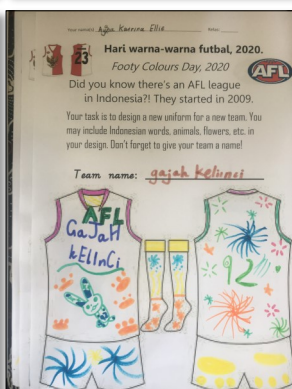 Your name(s): Ayska Karrina Ellie Kelas:
23
Hari warna-warna futbal, 2020.
Footy Colours Day, 2020
AFL
Did you know there's an AFL league
in Indonesia?! They started in 2009.
Your task is to design a new uniform for a new team. You
may include Indonesian words, animals, flowers, etc. in
your design. Don't forget to give your team a name!
Team name: gajah kelinnci
AFL
GaJaH
kElInCi
92